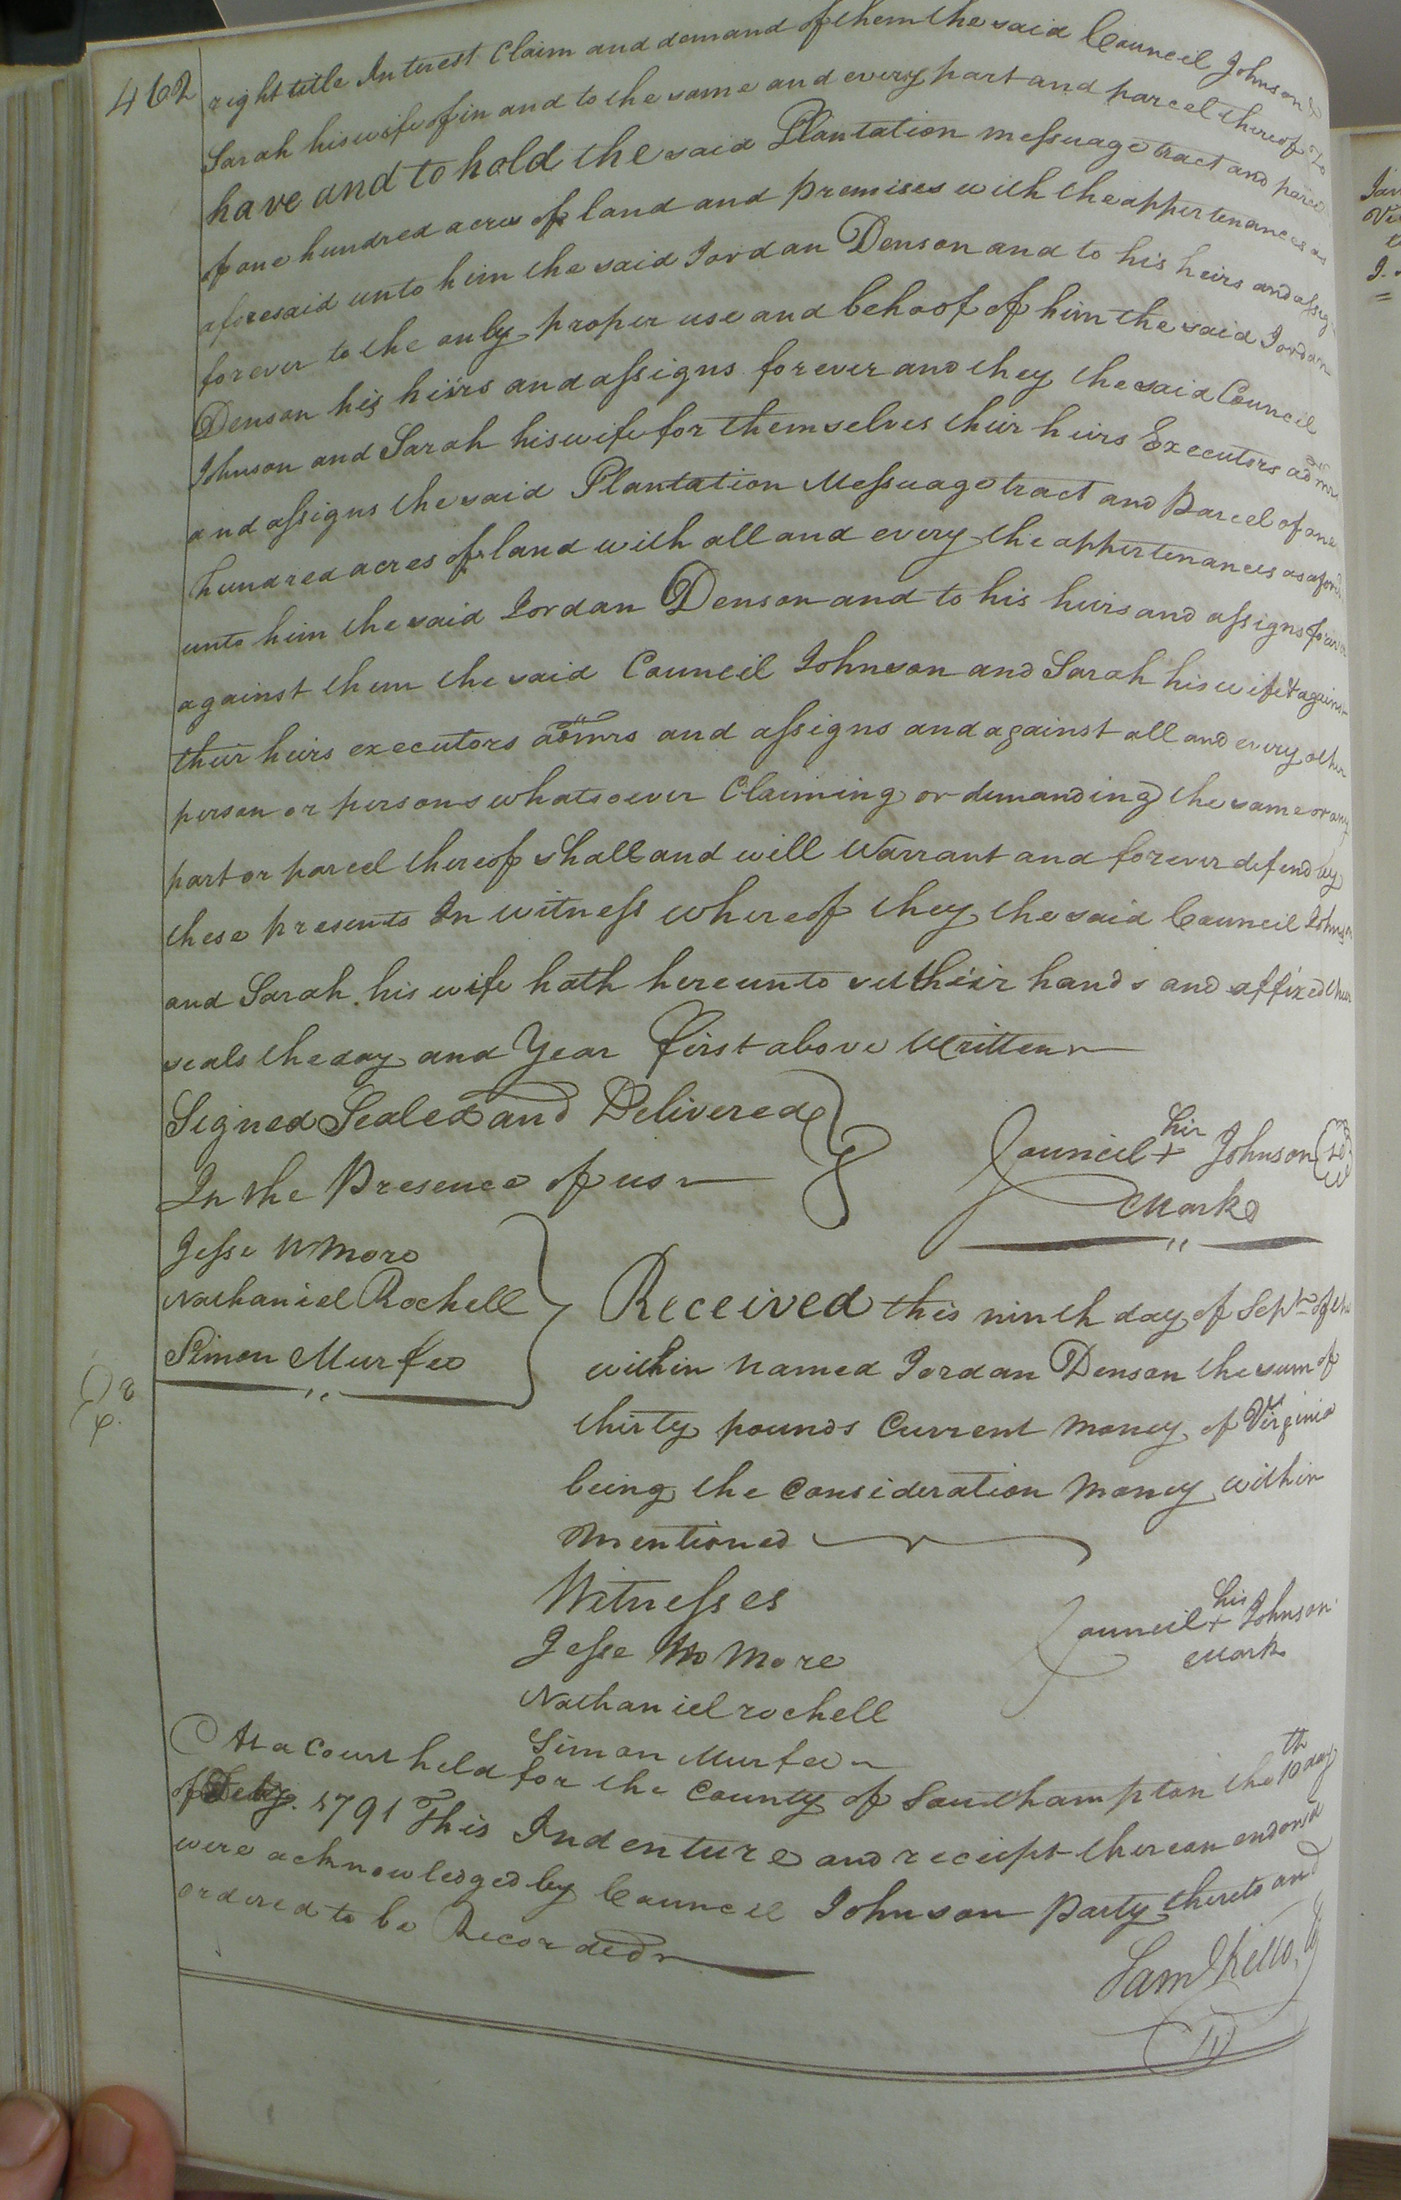 462
right title Interest Claim and demand of them the said Council Johnson &
Sarah his wife of in and to the same and every part and parcel thereof To
have and to hold the said Plantation messuage tract and parcel
of one hundred acres of land and premises with the appertenances as
aforesaid unto him the said Jordan Denson and to his heirs and assigns
forever to the only proper use and behoof of him the said Jordan
Denson his heirs and assigns forever and they the said Council
Johnson and Sarah his wife for themselves their heirs Executors admrs
and assigns the said Plantation Messuage tract and Parcel of one
hundred acres of land with all and every the appertenances as aforsd
unto him the said Jordan Denson and to his heirs and assigns forever
against them the said Council Johnson and Sarah his wife & against
their heirs executors admrs and assigns and against all and every other
person or persons whatsoever Claiming or demanding the same or any
part or parcel thereof shall and will Warrant and forever defend by
these presents In witness whereof they the said Council Johnson
and Sarah his wife hath hereunto set their hands and affixed their
seals the day and Year first above Written
Signed Sealed and Delivered
In the Presence of us
his
Council + Johnson
Mark
Jesse W More
Nathaniel Rochell
Simon Murfee
Received this ninth day of Septr of the
within named Jordan Denson the sum of
thirty pounds Current Money of Virginia
being the Consideration Money within
Mentioned
Witnesses
his
Council + Johnson
Mark
Jesse More
Nathaniel rochell
Simon Murfee
At a Court held for the County of Southampton the 10th day
of 1791 This Indenture and reciept thereon endorsd
were acknowledged by Council Johnson Party thereto and
ordered to be Recorded
Saml Kello